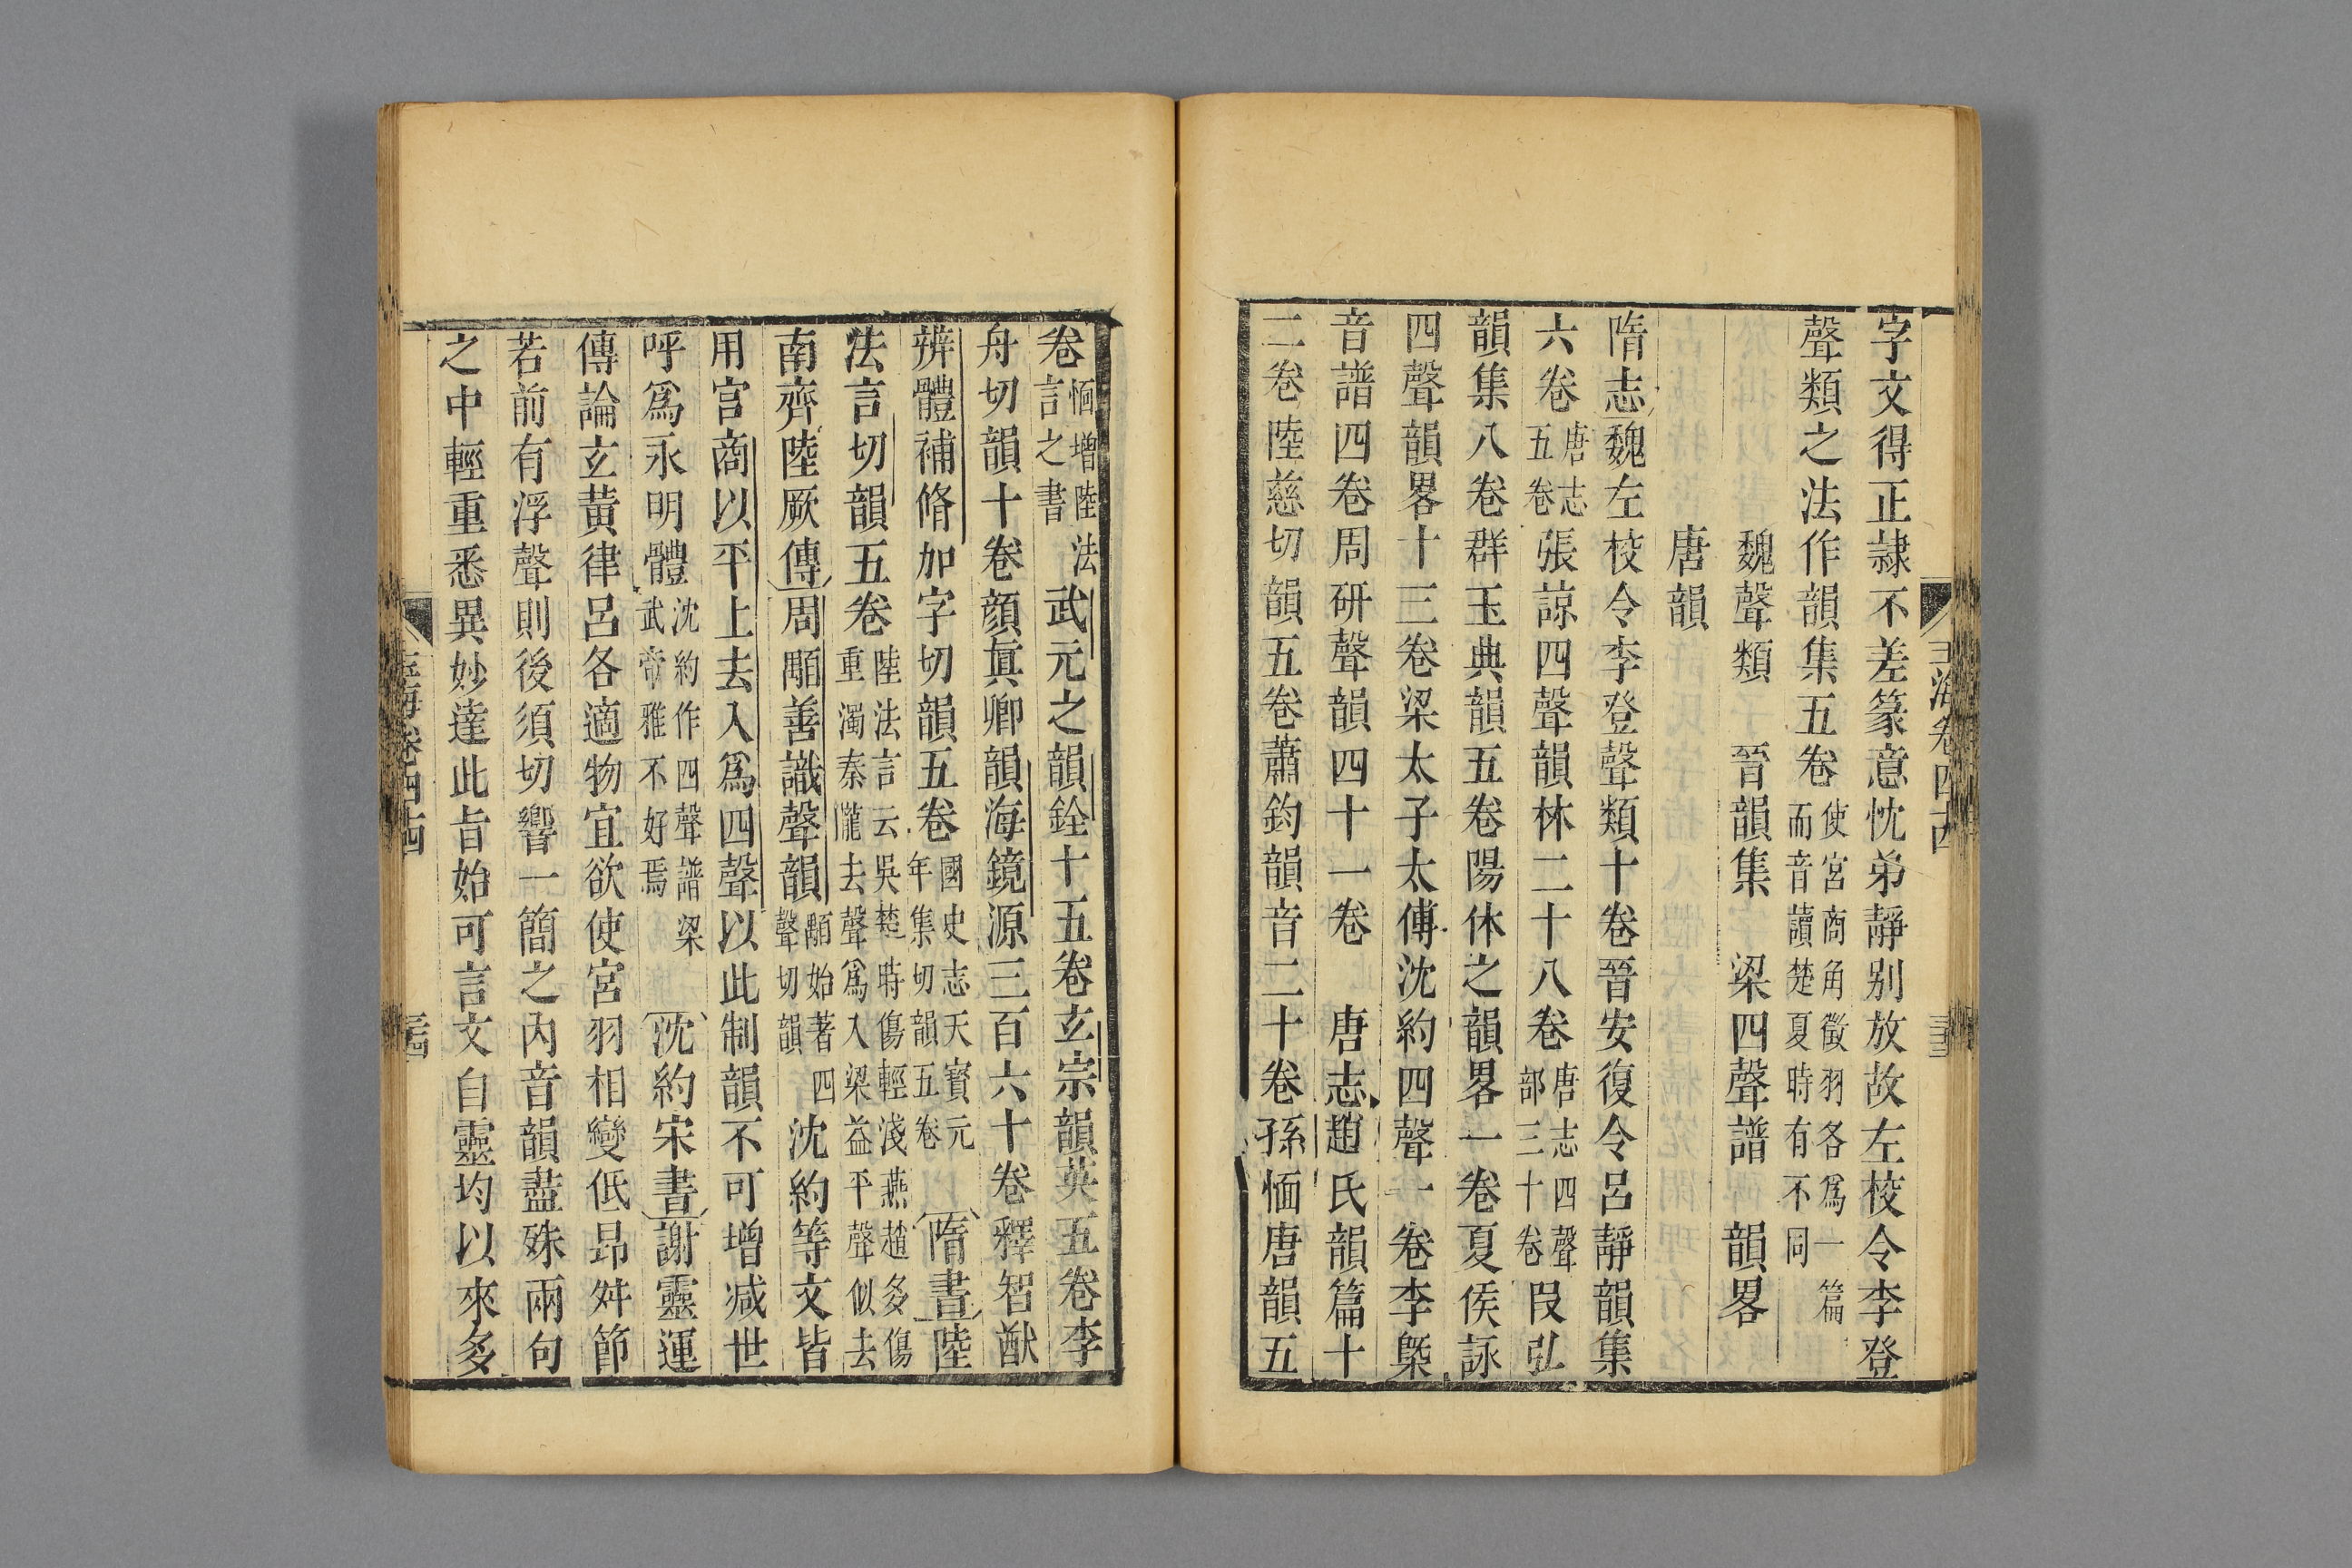 字文得正隷不差篆意忱弟靜别放故左校令李登
聲類之法作韻集五卷使宮商角徵羽各爲一篇而音讀楚夏時有不同
魏聲類　晉韻集　梁四聲譜　韻畧
唐韻
隋志魏左校令李登聲類十卷晉安復令呂靜韻集
六卷唐志五卷張諒四聲韻林二十八卷唐志四聲部三十卷段弘
韻集八卷群玉典韻五卷陽休之韻畧一卷夏侯詠
四聲韻畧十三卷梁太子太傅沈約四聲一卷李槩
音譜四卷周研聲韻四十一卷　唐志趙氏韻篇十
二卷陸慈切韻五卷蕭鈞韻音二十卷孫愐唐韻五
卷愐增陸法言之書武元之韻銓十五卷玄宗韻英五卷李
舟切韻十卷顔眞卿韻海鏡源三百六十卷釋智猷
辨體補脩加字切韻五卷國史志天寳元年集切韻五卷隋書陸
法言切韻五卷陸法言云吳楚時傷輕淺燕趙多傷重濁秦隴去聲爲入梁益平聲似去
南齊陸厥傳周顒善識聲韻顒始著四聲切韻沈約等文皆
用宫商以平上去入爲四聲以此制韻不可增减世
呼爲永明體沈約作四聲譜梁武帝雅不好焉沈約宋書謝靈運
傳論玄黄律呂各適物宜欲使宮羽相變低昻舛節
若前有浮聲則後須切響一簡之內音韻盡殊兩句
之中輕重悉異妙達此旨始可言文自靈均以來多